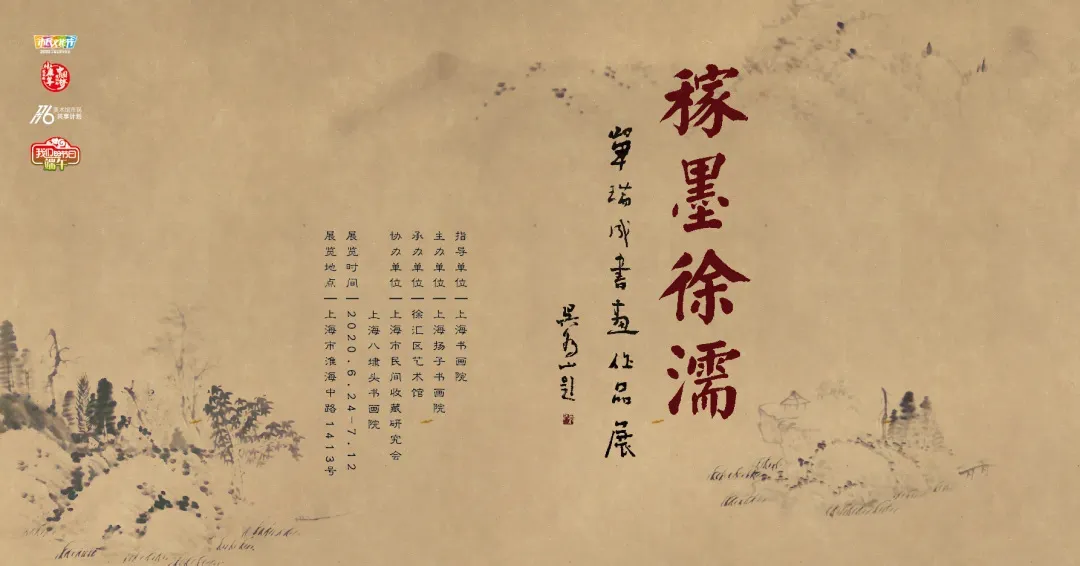 稼墨徐濡
单瑞成书画作品展
吴为山题
指导单位|上海书画院
主办单位|上海扬子书画院
承办单位|徐汇区艺术馆
协办单位|上海市民间收藏研究会
上海八埭头书画院
展览时间|2020.6.24-7.12
展览地点|上海市淮海中路1413号
市民文化节
我们的节日
端午